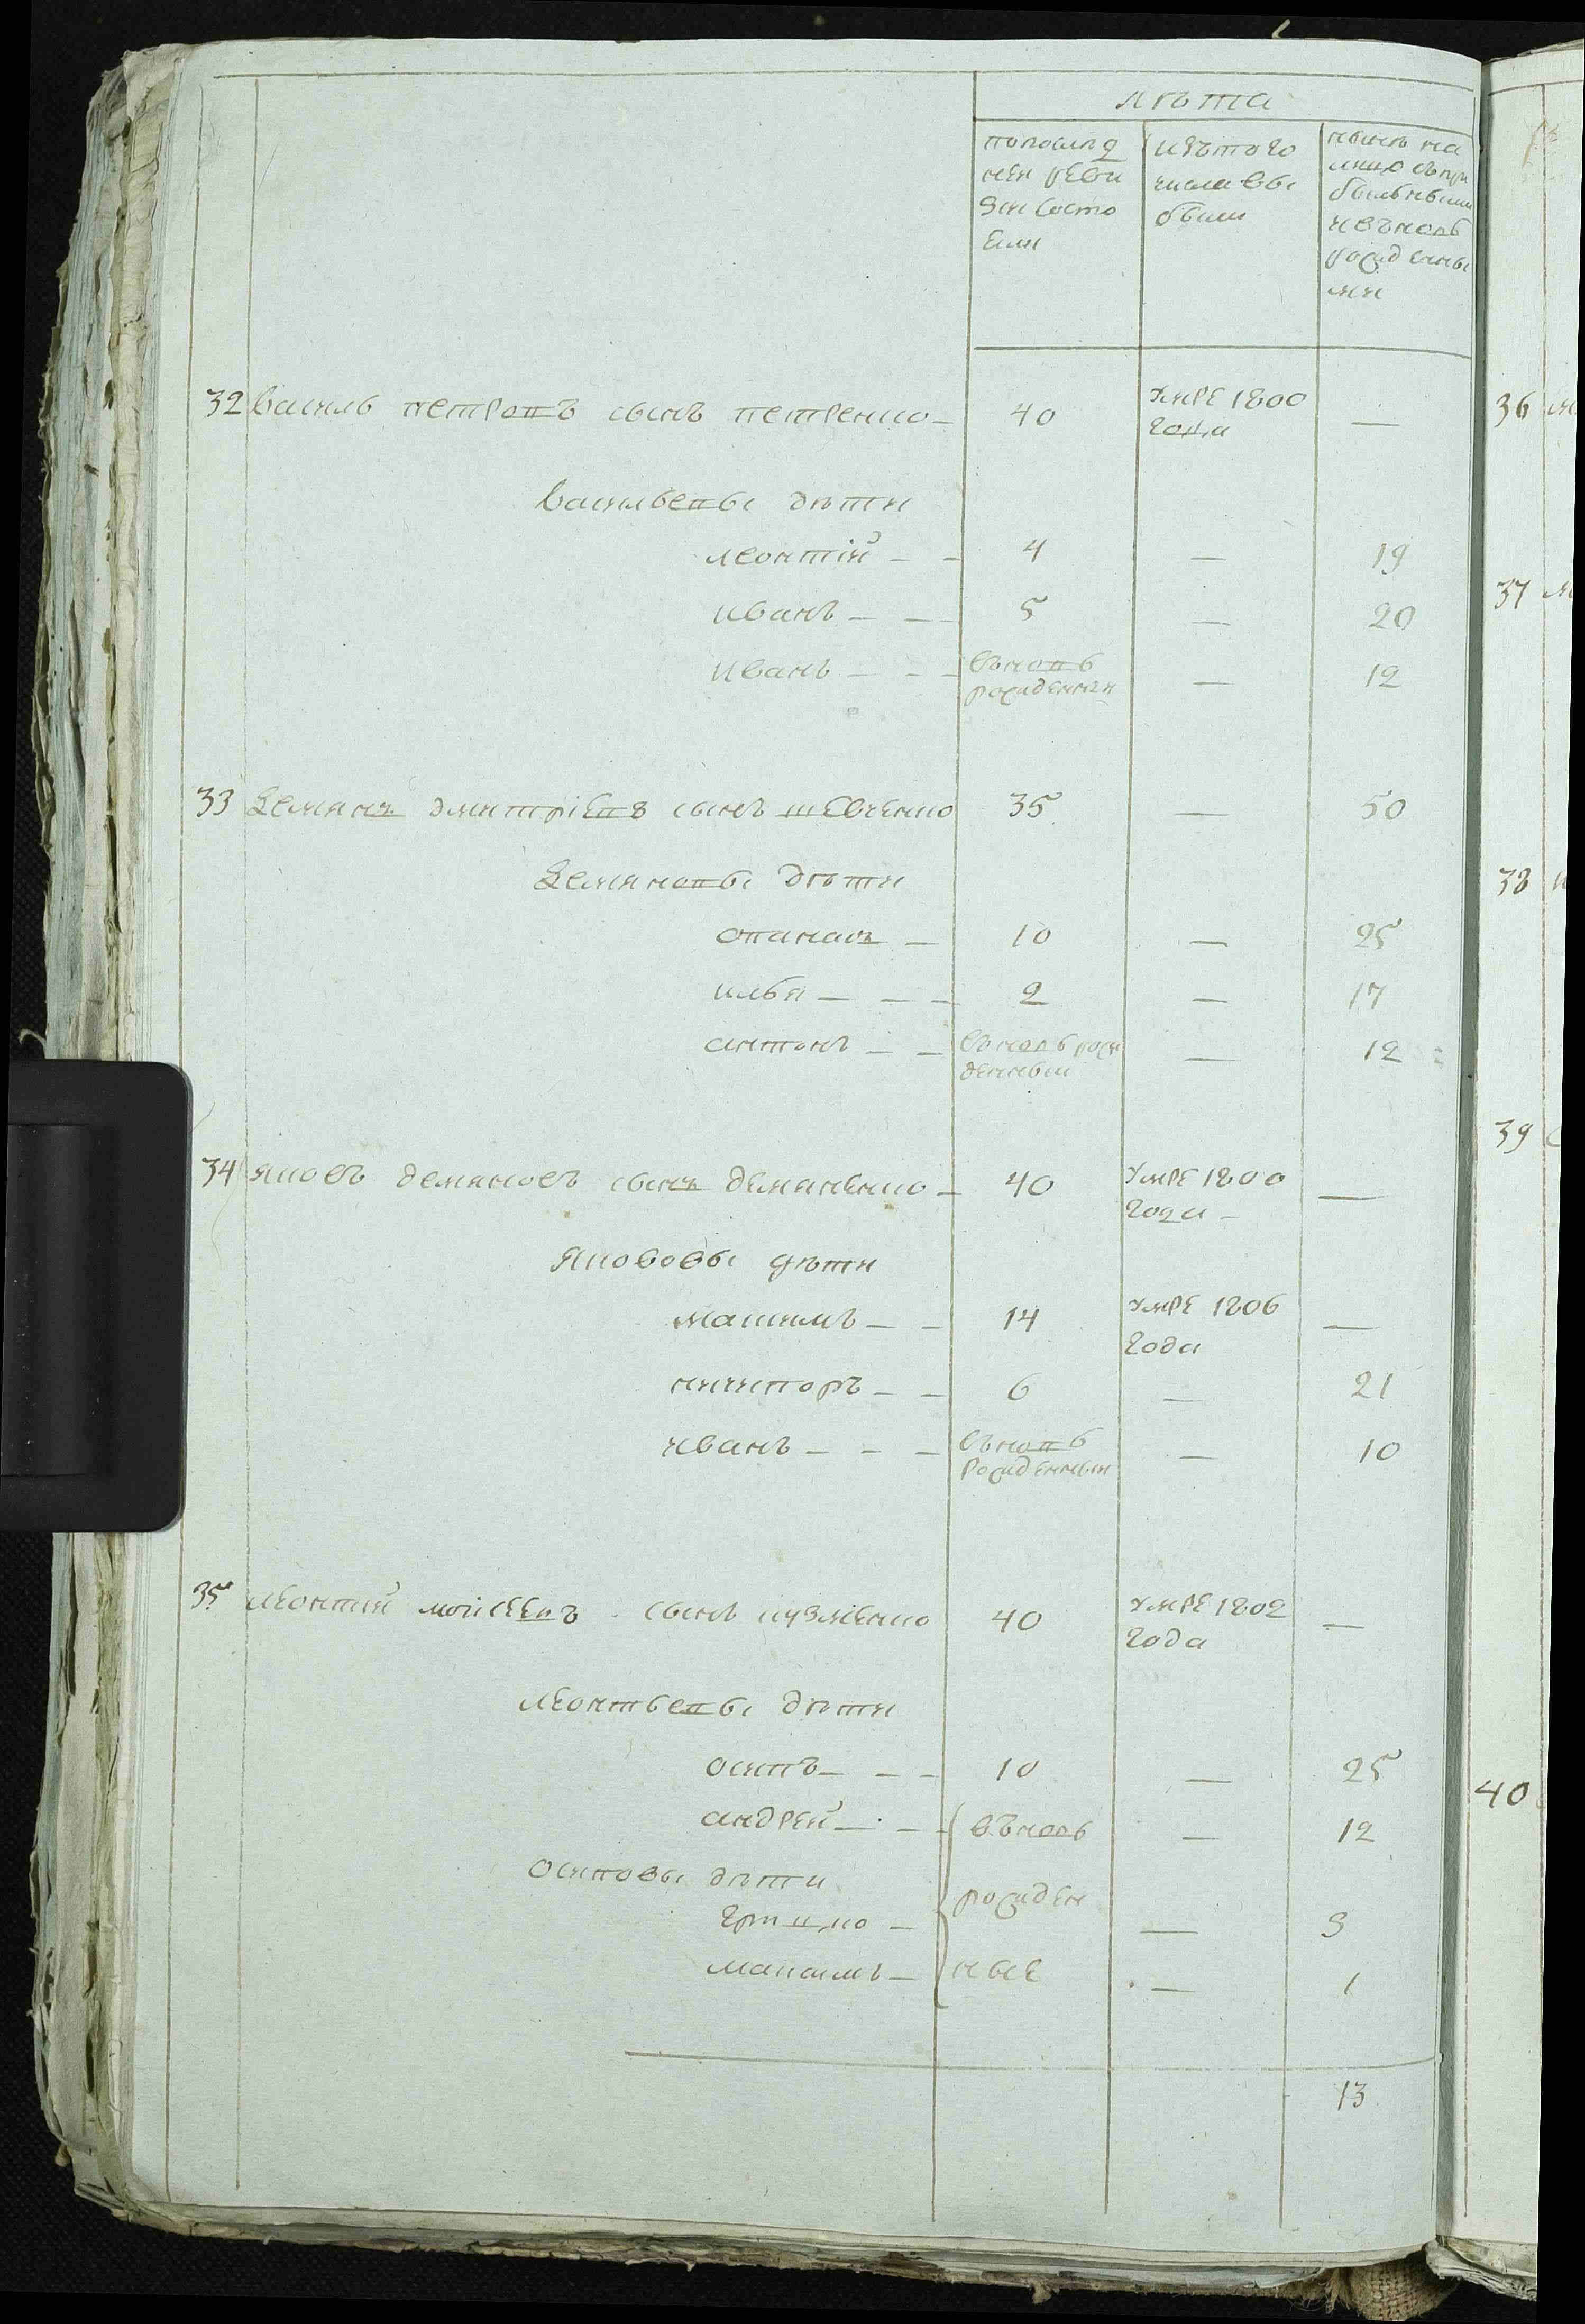 лѣта
попослѣд
ней реви
зіи состо
яли
изътого
числа вы
были
нынѣ на
лицо съпри
былыми
ивъновь
рожденны
ми
32 василь петровъ сынъ петренко — 40 умре 1800 —
года
васильевы дѣти
леонтій — — 4 — 19
иванъ — — — 5 — 20
иванъ — — — въновь — 12
рожденныи
33 Демянъ дмитріевъ сынъ шевченко 35 — 50
Демяновы дѣти
опанасъ — 10 — 25
илья — — — 2 — 17
антонъ — — въновь рож — 12
денныи
34 яковъ демяновъ сынъ демяненко — 40 умре 1800 —
года —
якововы дѣти
максимъ — — 14 умре 1806 —
года
ничипоръ — — 6 — 21
иванъ — — — въновь — 10
рожденныи
35 леонтій мойсеевъ сынъ кузменко 40 умре 1802 —
года
леонтьевы дѣти
осипъ — — — 10 — 25
андрей — — — въновь — 12
осиповы дѣти
рожден
грицко — — 3
максимъ — ные — 1
13
36
37
38
39
40